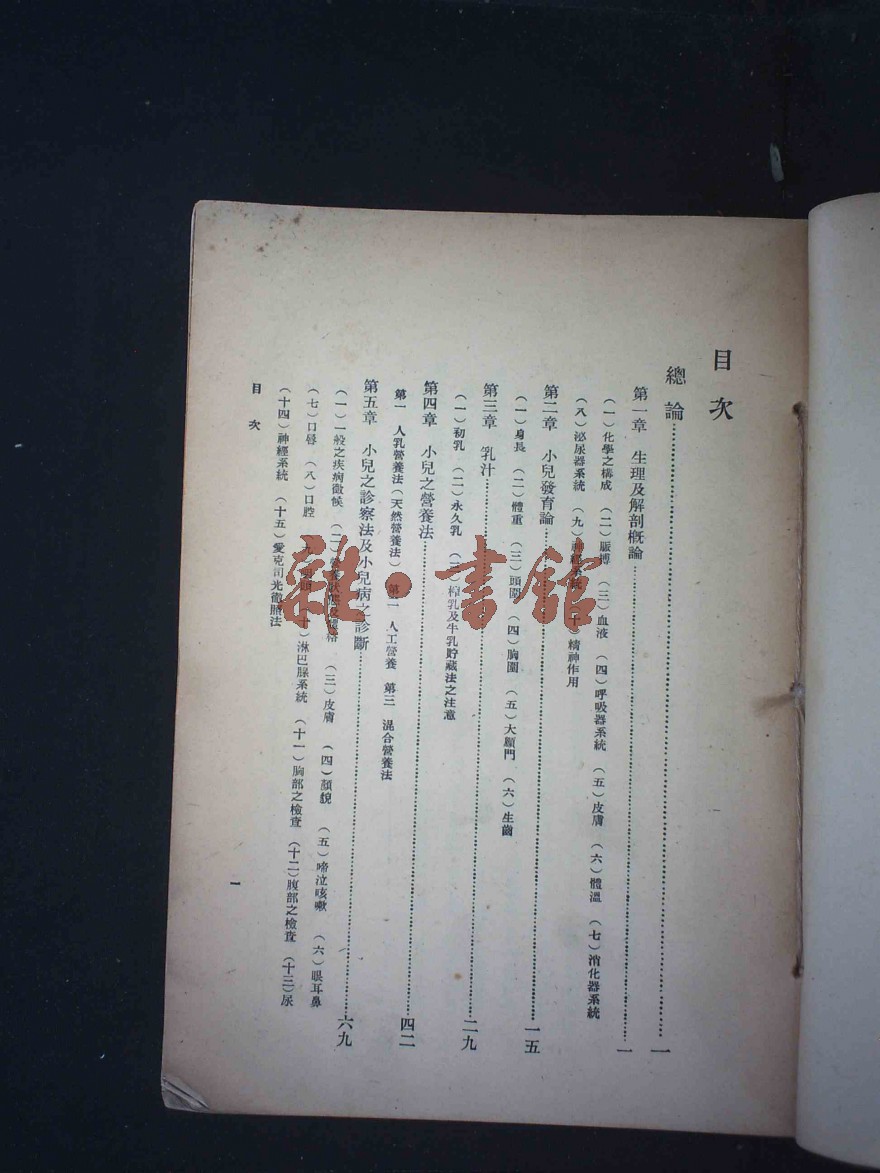 目次
總論 一
第一章 生理及解剖概論 一
(一)化學之構成 (二)脈搏 (三)血液 (四)呼吸器系統 (五)皮膚 (六)體溫 (七)消化器系統
(八)泌尿器系統 (九)神經系統 (十)精神作用
第二章 小兒發育論 一五
(一)身長 (二)體重 (三)頭圍 (四)胸圍 (五)大顖門 (六)生齒
第三章 乳汁 二九
(一)初乳 (二)永久乳 (三)搾乳及牛乳貯藏法之注意
第四章 小兒之營養法 四二
第一 人乳營養法(天然營養法) 第二 人工營養 第三 混合營養法
第五章 小兒之診察法及小兒病之診斷 六九
(一)一般之疾病徵候 (二)營養狀態及體格 (三)皮膚 (四)顏貌 (五)啼泣咳嗽 (六)眼耳鼻
(七)口唇 (八)口腔 (十)淋巴腺系統 (十一)胸部之檢查 (十二)腹部之檢查 (十三)尿
(十四)神經系統 (十五)愛克司光徵照法
目次
一
雜·書館